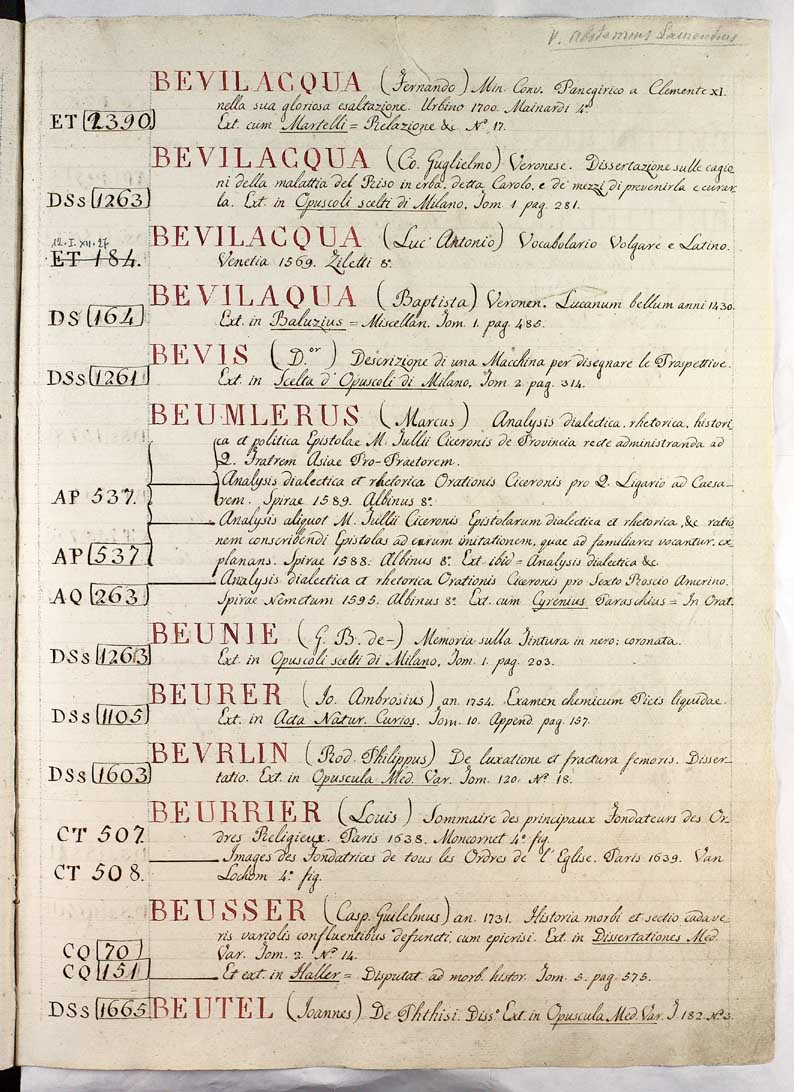 v. Abstemius Laurentius
BEVILACQUA (Fernando) Min. Conv. Panegirico a Clemente XI.
nella sua gloriosa esaltazione. Urbino 1700. Mainardi 4.º
ET 2390 Ext. cum Martelli = Relazione &c. Nº 17.
BEVILACQUA (Co. Guglielmo) Veronese. Dissertazione sulle cagio-
ni della malattia del Riso in erba, detta Carolo, e de' mezzi di prevenirla e curar-
DSs 1263 la. Ext. in Opuscoli scelti di Milano, Tom. 1. pag. 281.
12.I.XII.27 BEVILACQUA (Luc' Antonio) Vocabolario Volgare e Latino.
ET 184. Venetia 1569. Ziletti 8.º
BEVILAQUA (Baptista) Veronen. Lucanum bellum anni 1430.
DS 164 Ext. in Baluzius = Miscellan. Tom. 1. pag. 485.
BEVIS (D.or) Descrizione di una Macchina per disegnare le Prospettive.
DSs 1261 Ext. in Scelta d' Opuscoli di Milano, Tom. 2. pag. 314.
BEUMLERUS (Marcus) Analysis dialectica, rhetorica, histori-
ca et politica Epistolae M. Tullii Ciceronis de Provincia recte administranda ad
Q. Fratrem Asiae Pro-Praetorem.
Analysis dialectica et rhetorica Orationis Ciceronis pro Q. Ligario ad Caesa-
AP 537. rem. Spirae 1589. Albinus 8.º
Analysis aliquot M. Tullii Ciceronis Epistolarum dialectica et rhetorica, &c ratio-
nem conscribendi Epistolas ad earum imitationem, quae ad familiares vocantur, ex-
AP 537 planans. Spirae 1588. Albinus 8.º Ext. ibid = Analysis dialectica &c.
Analysis dialectica et rhetorica Orationis Ciceronis pro Sexto Roscio Amerino.
AQ 263 Spirae Nemetum 1595. Albinus 8.º Ext. cum Cyrenius Paraschius = In Orat.
BEUNIE (G. B. de-) Memoria sulla Tintura in nero; coronata.
DSs 1263 Ext. in Opuscoli scelti di Milano, Tom. 1. pag. 203.
BEURER (Jo. Ambrosius) an. 1754. Examen chemicum Picis liquidae.
DSs 1105 Ext. in Acta Natur. Curios. Tom. 10. Append. pag. 157.
BEVRLIN (Rod. Philippus) De luxatione et fractura femoris. Disser-
DSs 1603 tatio. Ext. in Opuscula Med. Var. Tom. 120. Nº 18.
BEURRIER (Louis) Sommaire des principaux Fondateurs des Or-
CT 507. dres Religieux. Paris 1638. Moncornet 4.º fig.
Images des Fondatrices de tous les Ordres de l' Eglise. Paris 1639. Van
CT 508. Lochom 4.º fig.
BEUSSER (Casp. Guilelmus) an. 1731. Historia morbi et sectio cadave-
ris variolis confluentibus defuncti, cum epicrisi. Ext. in Dissertationes Med.
CQ 70 Var. Tom. 2. Nº 14.
CQ 151 Et ext. in Haller = Disputat. ad morb. histor. Tom. 5. pag. 575.
DSs 1665 BEUTEL (Joannes) De Phthisi. Diss.º Ext. in Opuscula Med. Var. T. 182. Nº 3.